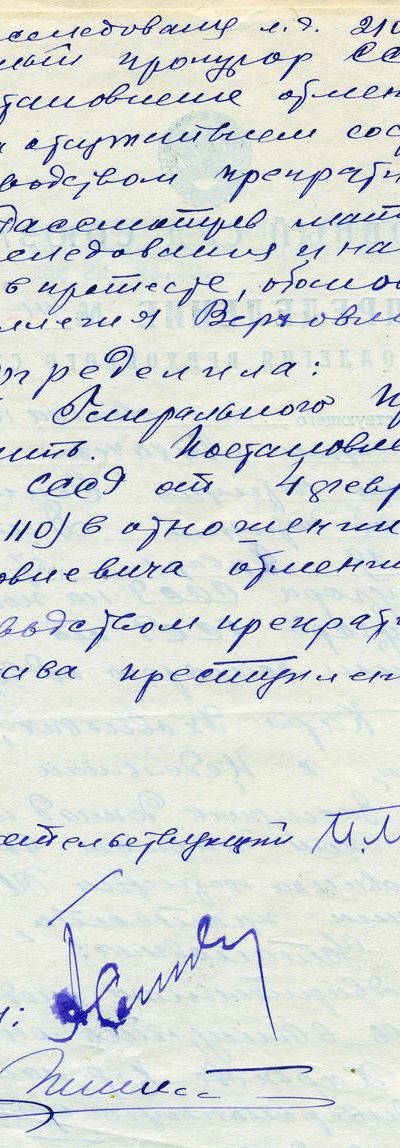 сследования л.д. 210
прокурор ССС
тановление отмен
отсутствием сос
водством прекрати
Рассмотрев мат
следования и на
в протесте, обосно
ллегия Верховн
определила:
Генерального Пр
ить. Постановле
СССР от 4 февр
110) в отношении
овиевича отмени
водством прекрати
ава преступлен
ательствующий П.М